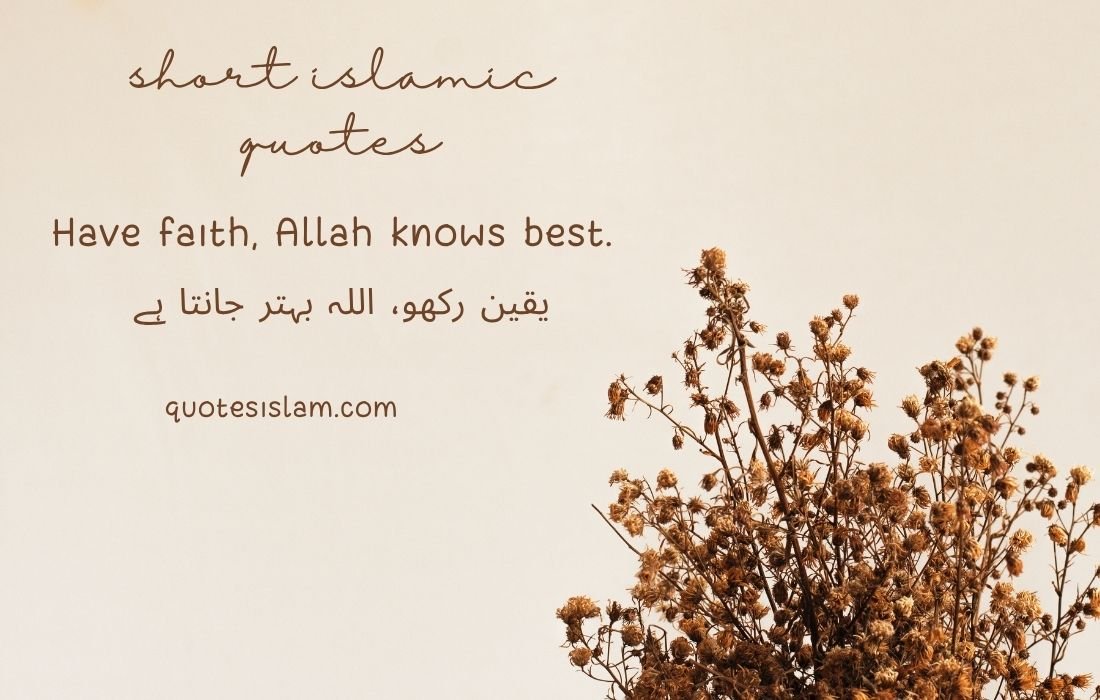 short islamic
quotes
Have faith, Allah knows best.
یقین رکھو، اللہ بہتر جانتا ہے
quotesislam.com